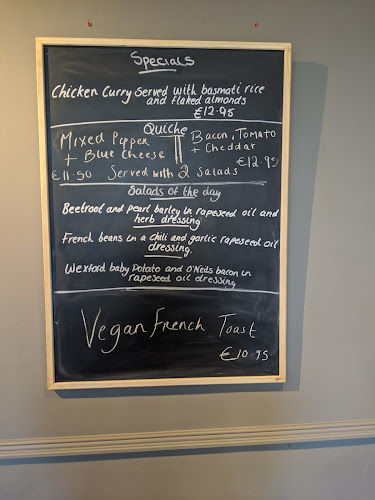 Specials
Chicken Curry Served with basmati rice
and flaked almonds
€12.95
Quiche
Mixed Pepper
+ Blue Cheese
€11.50
Bacon, Tomato
+ Cheddar
€12.95
Served with 2 Salads
Salads of the day
Beetroot and pearl barley in rapeseed oil and
herb dressing
French beans in a chili and garlic rapeseed oil
dressing.
Wexford baby Potato and O'Neils bacon in
rapeseed oil dressing
Vegan French Toast
€10.95